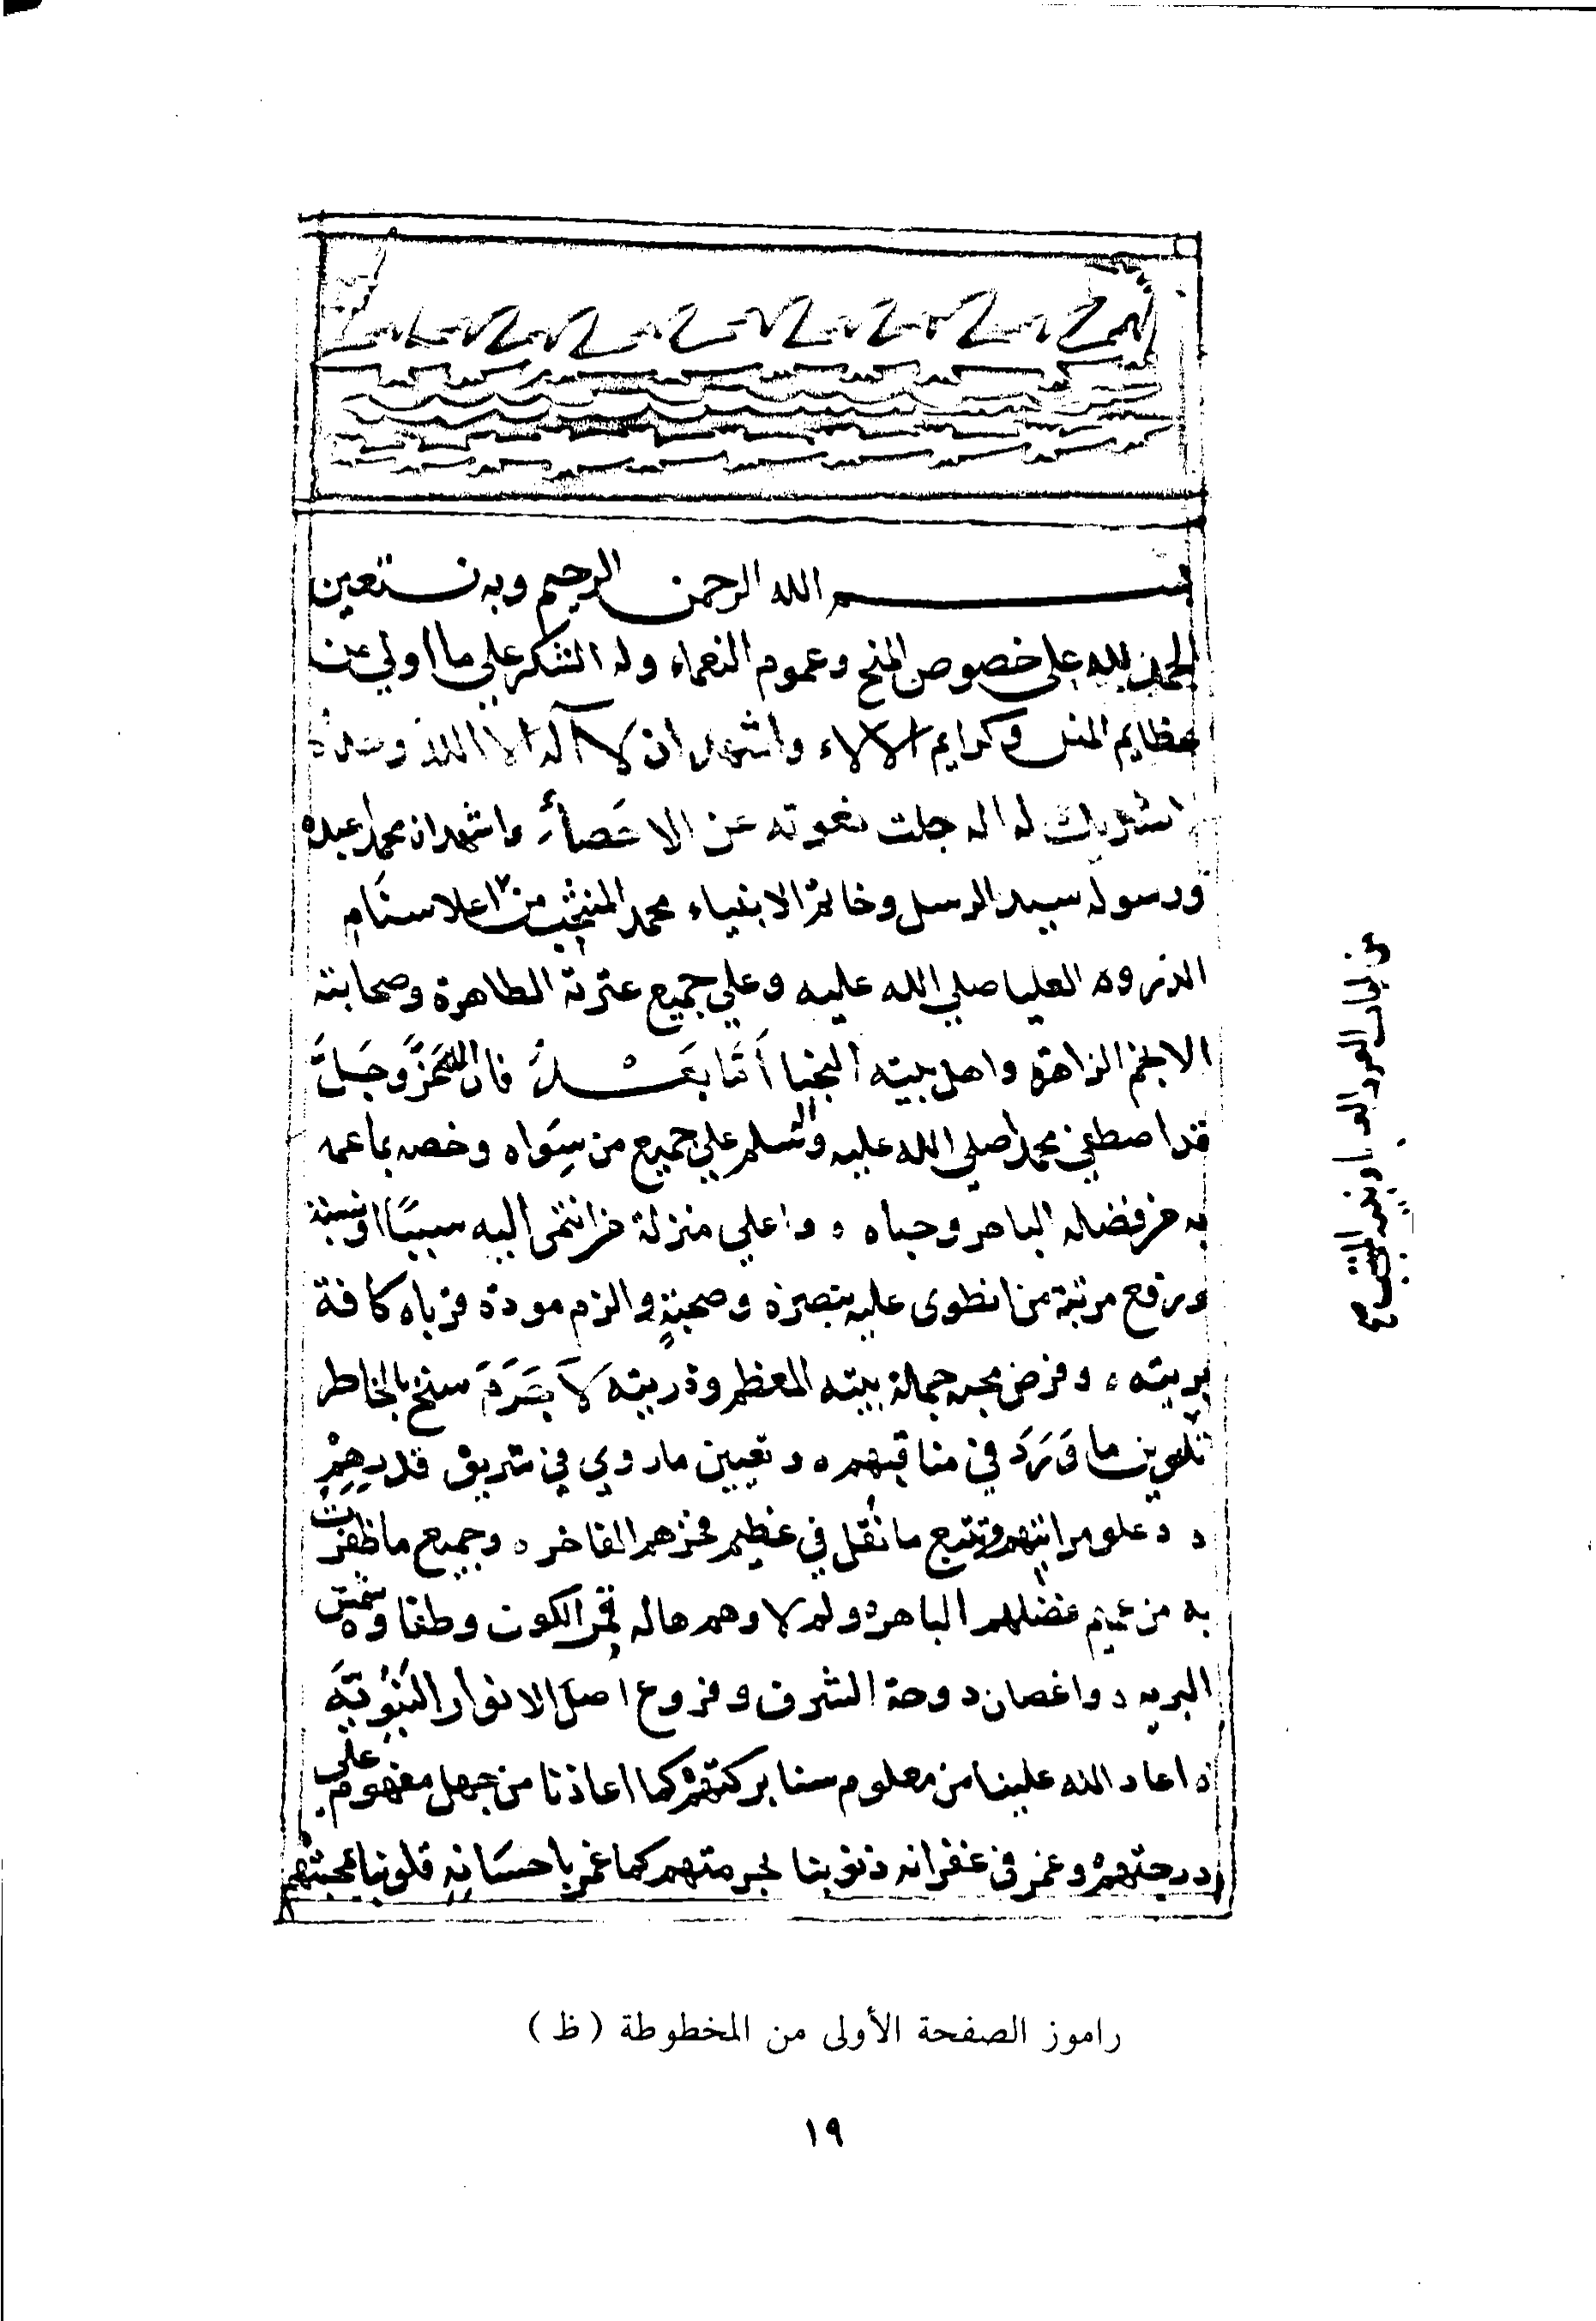 بسم الله الرحمن الرحيم وبه نستعين
الحمد لله على خصوص المنح وعموم النعماء وله الشكر علي ما اولي من
عظايم المنن وكرايم الالاء واشهد ان لا اله الا الله وحده
لا شريك له اله جلت نعوته عن الاحصاء واشهد ان محمدا عبده
ورسوله سيد الرسل وخاتم الانبياء محمد المنتخب من اعلا سنام
الذروه العليا صلي الله عليه وعلي جميع عترته الطاهرة وصحابته
الانجم الزاهرة واهل بيته النجبا أما بَعْدُ فان الله عَزَّ وجَلَّ
قد اصطفي محمدا صلي الله عليه والسلم علي جميع من سِوَاه وخصه بما عمه
به من فضله الباهر وحباه واعلي منزلة من انتمى اليه سببًا او نسبة
ورفع مرتبة من انطوى عليه بنصرة وصحبةٍ والزم مودة قرباه كافة
بريته وفرض محبه جملة بيته المعظم وذريته لا جَرَمَ سنح بالخاطر
ما وَرَدَ في مناقبهم وتعيين ما روي في شريف قدرِهِمْ
وعلو مراتبهم وتتبع ما نُقل في عظيم فخرهم الفاخر وجميع ما ظفرت
به من عميم فضلهم الباهر ولم لا وهم هاله قمر الكون وطفاوة شمس
البريه واغصان دوحة الشرف وفروع اصل الانوار النبَوُيَّه
اعاد الله علينا من معلوم سنا بركتهم كما اعاذنا من جهل مفهوم على
درجتهم وغمر في غفرانه ذنوبنا لحرمتهم كما غمر باحسَانِهِ قلوبنا بمحبتهم
راموز الصفحة الأولى من المخطوطة ( ظ )
١٩